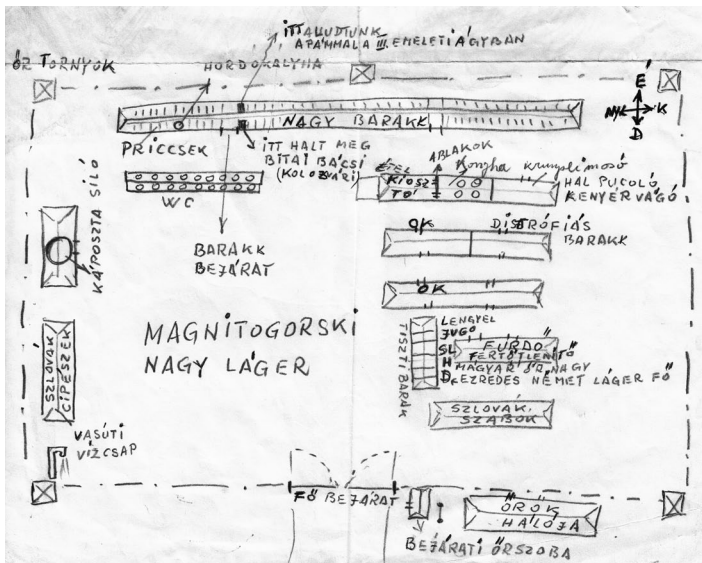 ITT ALUDTUNK
APÁMMAL A III. EMELETI ÁGYBAN
ŐR TORNYOK
HORDÓKÁLYHA
É
NY K
D
NAGY BARAKK
PRICCSEK
ITT HALT MEG
BITAI BÁCSI
(KOLOZSVÁRI)
WC
BARAKK
BEJÁRAT
KÁPOSZTA SILÓ
ABLAKOK
Konyha krumplimosó
ÉTEL
KIOSZ
TÓ
HAL PUCOLÓ
KENYÉRVÁGÓ
OK
DISTRÓFIÁS
BARAKK
OK
MAGNITOGORSKI
NAGY LÁGER
TISZTI BARAK
LENGYEL
JUGÓ
SL
H
D
FÜRDŐ
FERTŐTLENÍTŐ
MAGYAR ŐRNAGY
EZREDES NÉMET LÁGER FŐ
SZLOVÁK
SZABÓK
SZLOVÁK
CIPÉSZEK
VASÚTI
VÍZCSAP
FŐ BEJÁRAT
ŐRÖK
HÁLÓJA
BEJÁRATI ŐRSZOBA